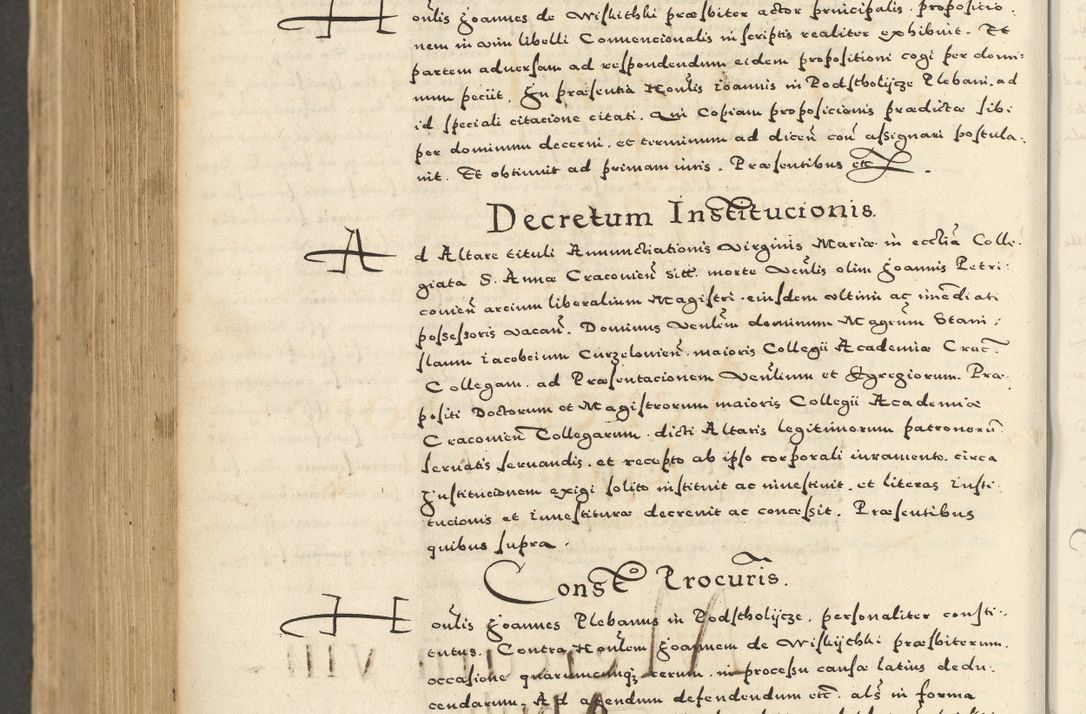 Honlis Joannes de Wiskithki præsbiter actor prnicipalis. propositio:
nem in vim libelli Convencionalis in scriptis realiter exhibuit. Et
partem adversam ad respondendum eidem propositioni cogi per domi:
num peciit. In præsentia Honlis ioannis in Podstholijcze Plebani. ad
id speciali citacione citati. Qui Copiam proposicionis prædictæ sibi
per dominum decerni. et terminum ad diceñ coñ assignari postula:
vit. Et obtinuit ad primam iuris. Præsentibus etc.
Decretum Institucionis.
Ad Altare tituli Annunctiationis Virginis Mariæ in ecctia Colle:
giata S. Annæ Cracovieñ sitt. morte Venlis olim Joannis Petri:
covieñ arcium liberalium Magistri. eiusdem vltimi ac imediati
possessoris vacañ. Dominus Venlem dominum Magrum Stani:
slaum iacobeium Curzelovieñ. maioris Collegii Academiæ Crac.
Collegam. ad Præsentacionem Venlium et Egregiorum. Præ
positi Doctorum et Magistrorum maioris Collegii Academiæ
Cracovieñ Collegarum. dicti Altaris legitimorum patronorũ
servatis servandis. et recepto ab ipso corporali iuramento. circa
Institucionem exigi solito instituit ac investivit. et literas insti:
tucionis et investituræ decrevit ac concessit. Præsentibus
quibus supra.
Constto Procuris.
Honlis Joannes Plebanus in Podstholijcze. personaliter consti:
tutus. Contra Honlem Joannem de Wiskijthki præsbiterum.
occasione quarumcunqz rerum. in processu causæ latius dedu:
cendarum. Ad agendum defendendum etc. als in forma